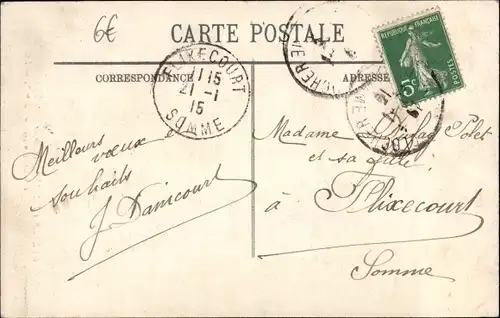 6€
CARTE POSTALE
CORRESPONDANCE
ADRESSE
FLIXECOURT
11 15
21 -1
15
SOMME
REPUBLIQUE FRANÇAISE
5c
POSTES
Meilleurs vœux
souhaits
J. Danicourt
Madame Polet
et sa
à Flixecourt
Somme